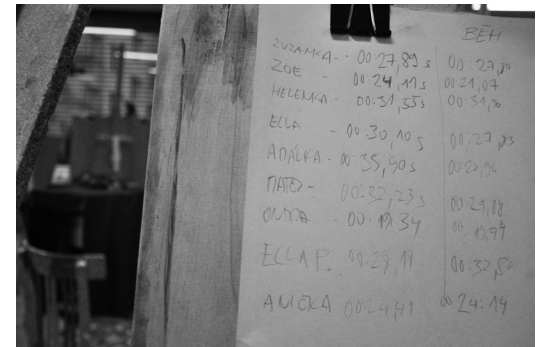 BĚH
ZUZANKA - 00:27,89 s 00:27,80
ZOE - 00:24,11 s 00:21,07
HELENKA - 00:31,55 s 00:31,30
ELLA - 00:30,10 s 00:27,83
ADÁLKA - 00:35,90 s
MATĚJ - 00:32,23 s 00:29,88
ONDRA - 00:19.34 00:19,94
ELLA P. 00:29,19 00:32,50
ANIČKA 00:24,41 00 24.14